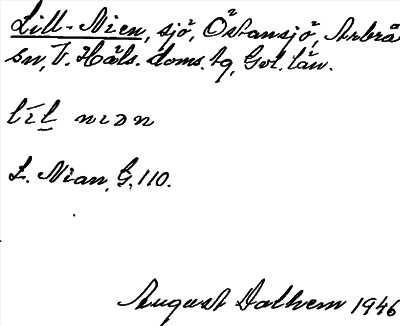 Lill-Nien, sjö, Östansjö, Arbrå
sn, V. Häls. doms. tg, Gvl. län.
L. Nian, G. 110.
August Dalhem 1946